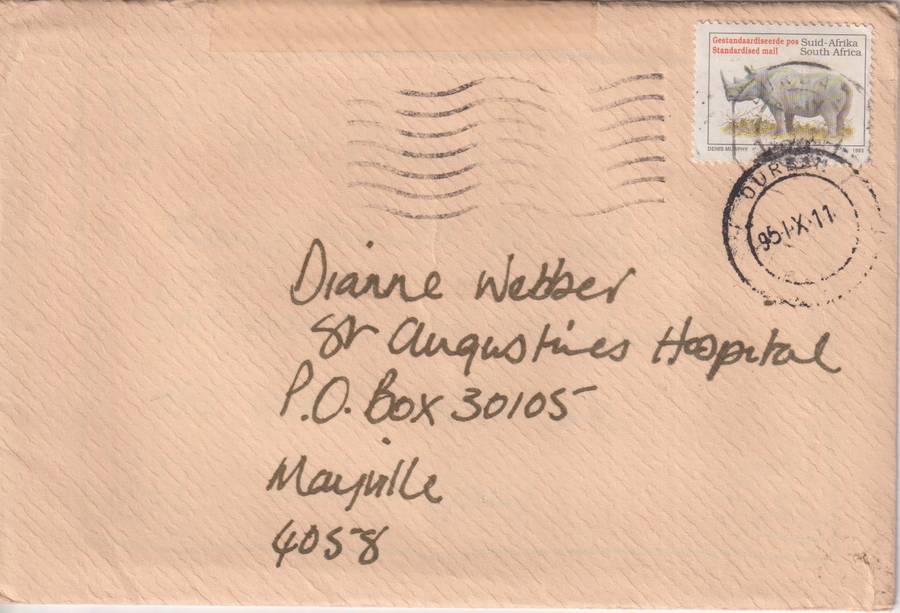 Gestandaardiseerde pos Suid-Afrika
Standardised mail South Africa
DENIS MURPHY 1993
DURBAN
95·I·X·11
Dianne Webber
St Augustines Hospital
P.O. Box 30105
Mayville
4058